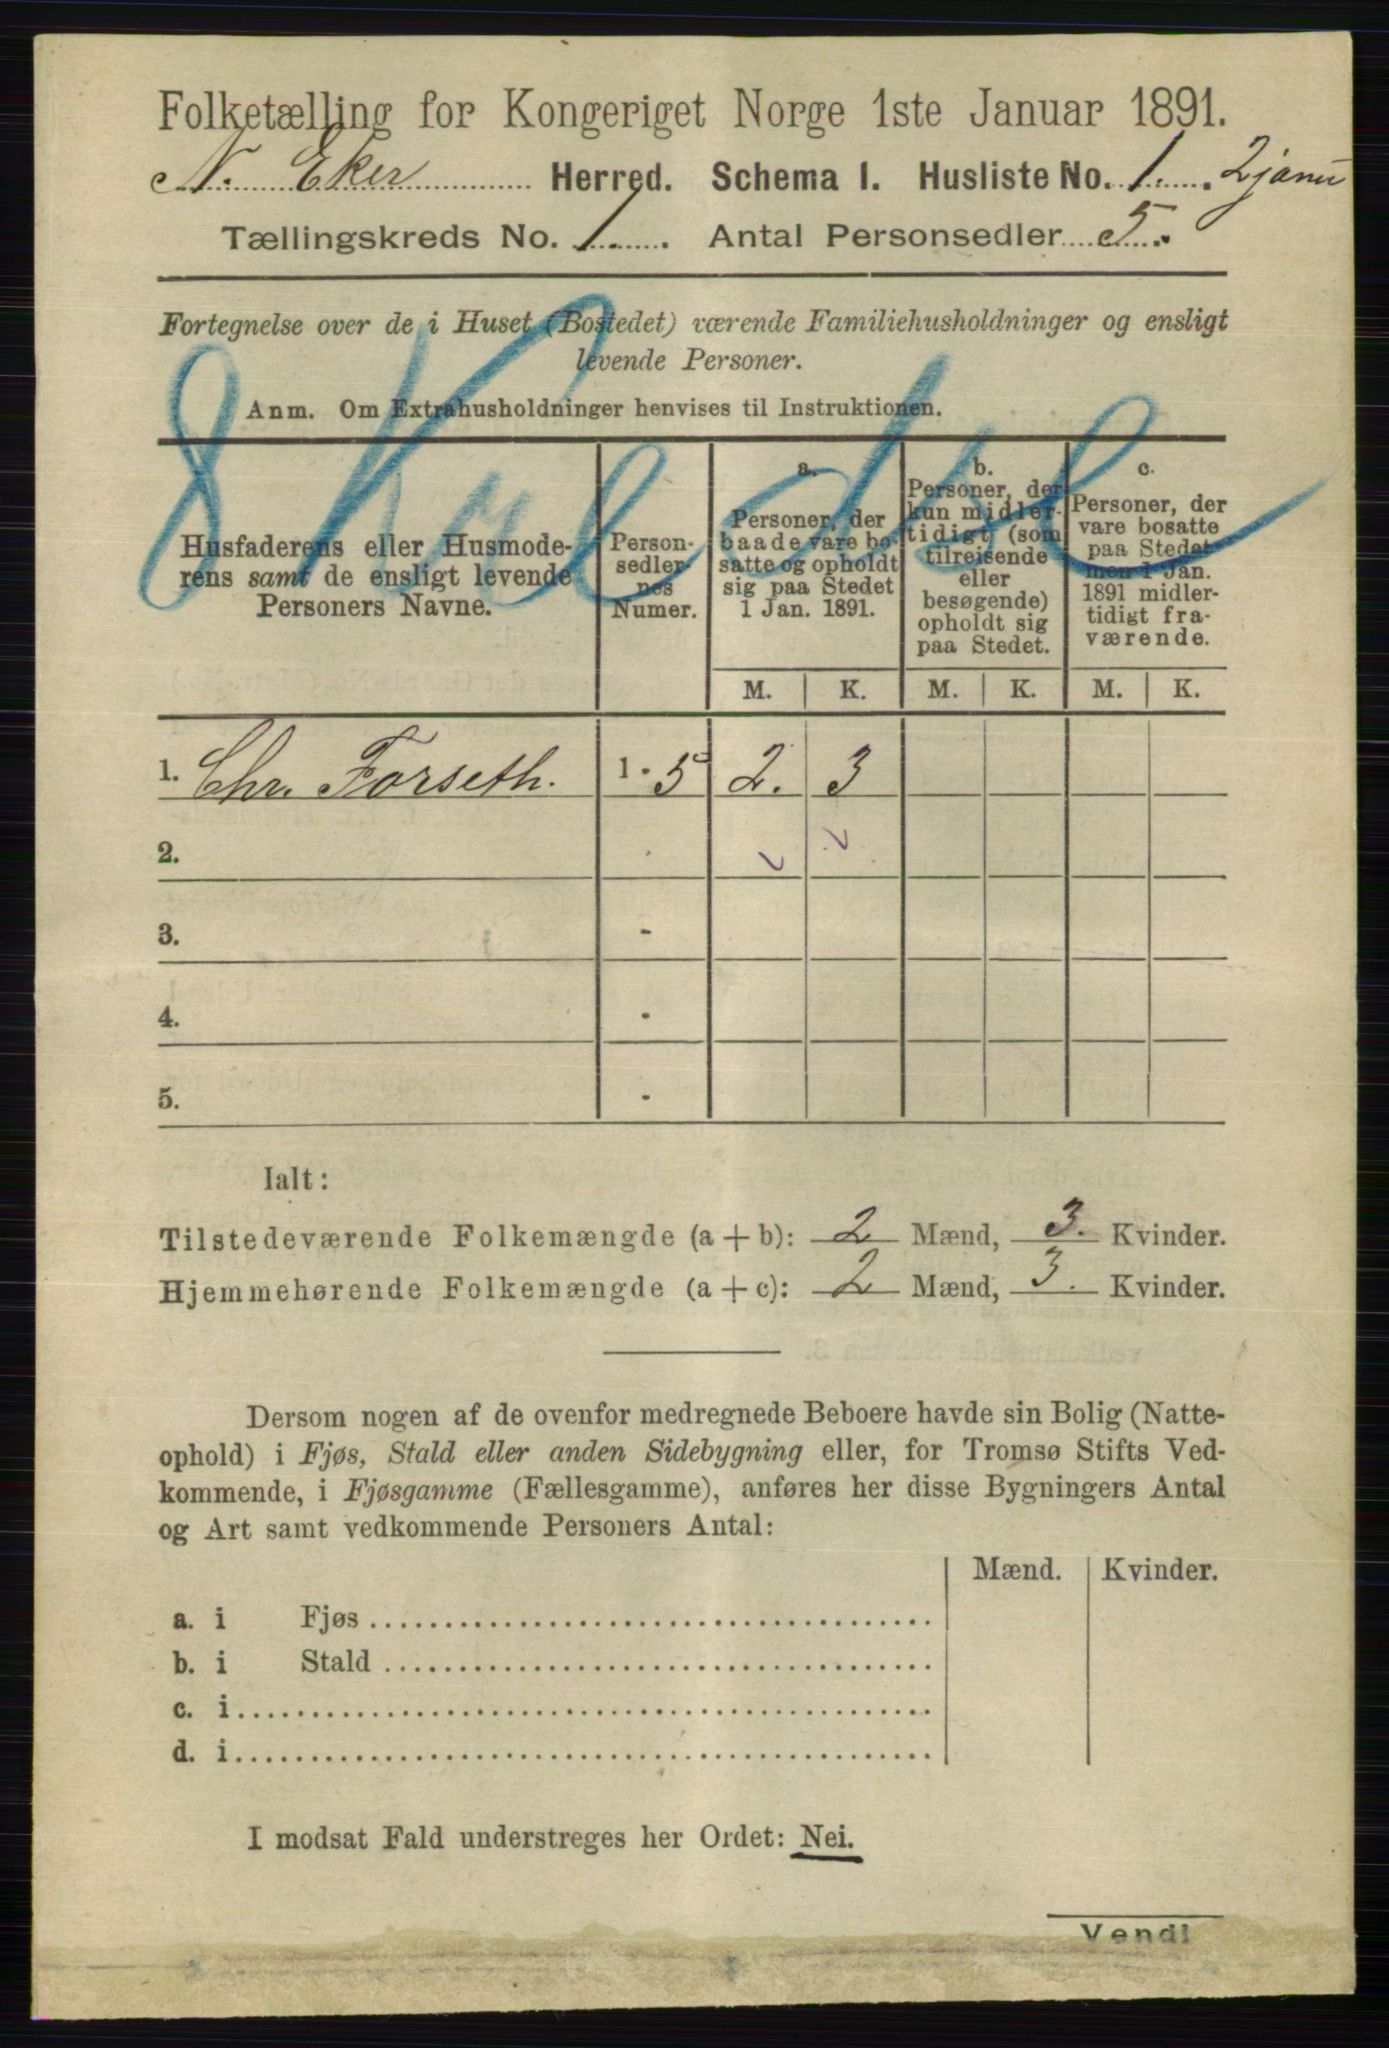 Folketælling for Kongeriget Norge 1ste Januar 1891.
N. Eker Herred. Schema 1. Husliste No. 1.
Tællingskreds No. 1. Antal Personsedler 5.
Fortegnelse over de i Huset (Bostedet) værende Familiehusholdninger og ensligt
levende Personer.
Anm. Om Extrahusholdninger henvises til Instruktionen.
8 Kredse
Husfaderens eller Husmode-
rens samt de ensligt levende
Personers Navne.
Person-
sedler-
nes
Numer.
a.
Personer, der
baade vare bo-
satte og opholdt
sig paa Stedet
1 Jan. 1891.
b.
Personer, der
kun midler-
tidigt (som
tilreisende
eller
besøgende)
opholdt sig
paa Stedet.
c.
Personer, der
vare bosatte
paa Stedet
men 1 Jan.
1891 midler-
tidigt fra-
værende.
M. K. M. K. M. K.
1. Chr. Forseth. 1 - 5 2. 3
2.
3. -
4. -
5. -
Ialt:
Tilstedeværende Folkemængde (a + b): 2 Mænd, 3. Kvinder.
Hjemmehørende Folkemængde (a + c): 2 Mænd, 3. Kvinder.
Dersom nogen af de ovenfor medregnede Beboere havde sin Bolig (Natte-
ophold) i Fjøs, Stald eller anden Sidebygning eller, for Tromsø Stifts Ved-
kommende, i Fjøsgamme (Fællesgamme), anføres her disse Bygningers Antal
og Art samt vedkommende Personers Antal:
Mænd. Kvinder.
a. i Fjøs
b. i Stald
c. i
d. i
I modsat Fald understreges her Ordet: Nei.
Vend!